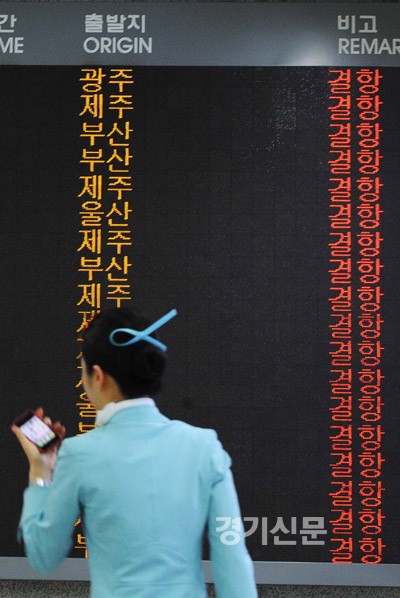 간 출발지 비고
ME ORIGIN REMAR
광주 결항
제주 결항
부산 결항
부산 결항
제주 결항
울산 결항
제주 결항
부산 결항
제주 결항
제 결항
결항
제 결항
울 결항
부 결항
결항
결항
결항
결항
경기신문